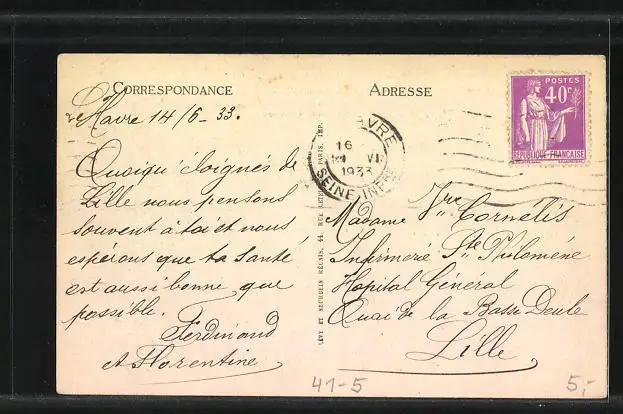 CORRESPONDANCE
Le Havre 14/6-33.
Quoiqu'éloignés de
Lille nous pensons
souvent à toi et nous
espérons que ta santé
est aussi bonne que
possible.
Ferdinand
et Florentine
LÉVY ET NEURDEIN RÉUNIS, 44, RUE LETELLIER, PARIS, IMP.
ADRESSE
HAVRE
16
VI
1933
SEINE INFRE
POSTES
40c
REPUBLIQUE FRANÇAISE
Madame Jne Cornélis
Infirmerie Ste Philomène
Hopital Général
Quai de la Basse Deule
Lille
41-5
5,-